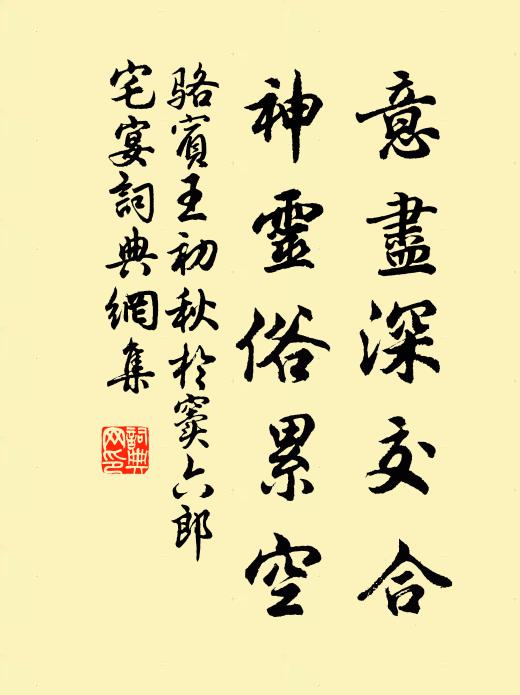 意盡深交合
神靈俗累空
駱賓王初秋於竇六郎
宅宴詞典網集
詞典网印